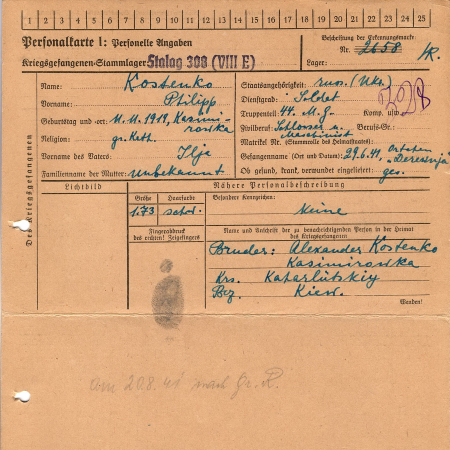 1 2 3 4 5 6 7 8 9 10 11 12 13 14 15 16 17 18 19 20 21 22 23 24 25
Personalkarte I: Personelle Angaben
Kriegsgefangenen-Stammlager: Stalag 308 (VIII E)
Beschriftung der Erkennungsmarke
Nr. 2658
Lager:
Des Kriegsgefangenen
Name: Kostenko
Vorname: Philipp
Geburtstag und -ort: 11.11.1919, Kasimi-
rowka
Religion: gr. Kath.
Vorname des Vaters: Ilja
Familienname der Mutter: unbekannt
Staatsangehörigkeit: russ. (Ukr.)
Dienstgrad: Soldat
Truppenteil: 44. M.G. Komp. usw.
Zivilberuf: Schlosser u. Berufs-Gr.
Maschinist
Matrikel Nr. (Stammrolle des Heimatstaates):
Gefangennahme (Ort und Datum): 29.6.41,
Ob gesund, krank, verwundet eingeliefert: ges.
Lichtbild
Nähere Personalbeschreibung
Größe
1.73
Haarfarbe
schw.
Besondere Kennzeichen:
Keine
Fingerabdruck
des rechten! Zeigefingers
Name und Anschrift der zu benachrichtigenden Person in der Heimat
des Kriegsgefangenen
Bruder: Alexander Kostenko
Kasimirowka
Krs. Katarlütskiy
Bez. Kiew.
Wenden!
am 20.8.41 nach Gr. R.